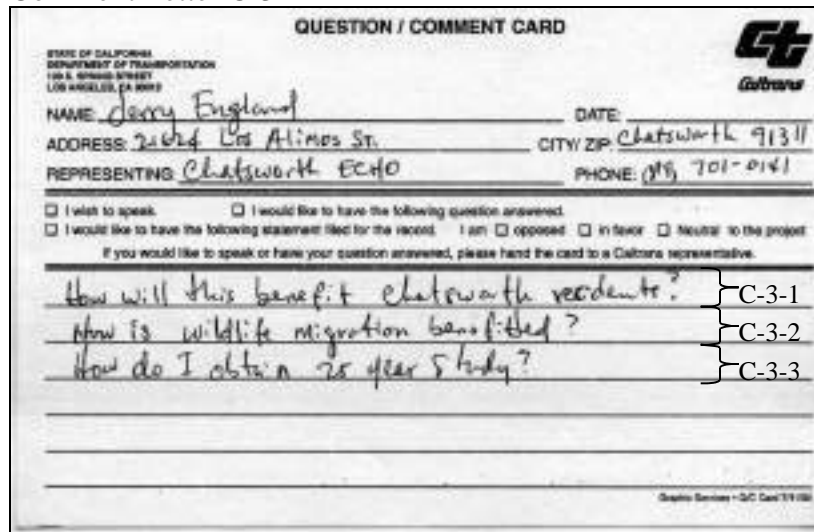 QUESTION / COMMENT CARD
STATE OF CALIFORNIA
DEPARTMENT OF TRANSPORTATION
LOS ANGELES, CA
Caltrans
NAME: Jerry England DATE:
ADDRESS: 21624 Los Alimos St. CITY/ ZIP Chatsworth 91311
REPRESENTING Chatsworth ECHO PHONE: 701-0141
I wish to speak. I would like to have the following question answered.
I would like to have the following statement filed for the record. I am opposed in favor Neutral to the project
If you would like to speak or have your question answered, please hand the card to a Caltrans representative.
How will this benefit Chatsworth residents? C-3-1
How is wildlife migration benefitted? C-3-2
How do I obtain 25 year Study? C-3-3